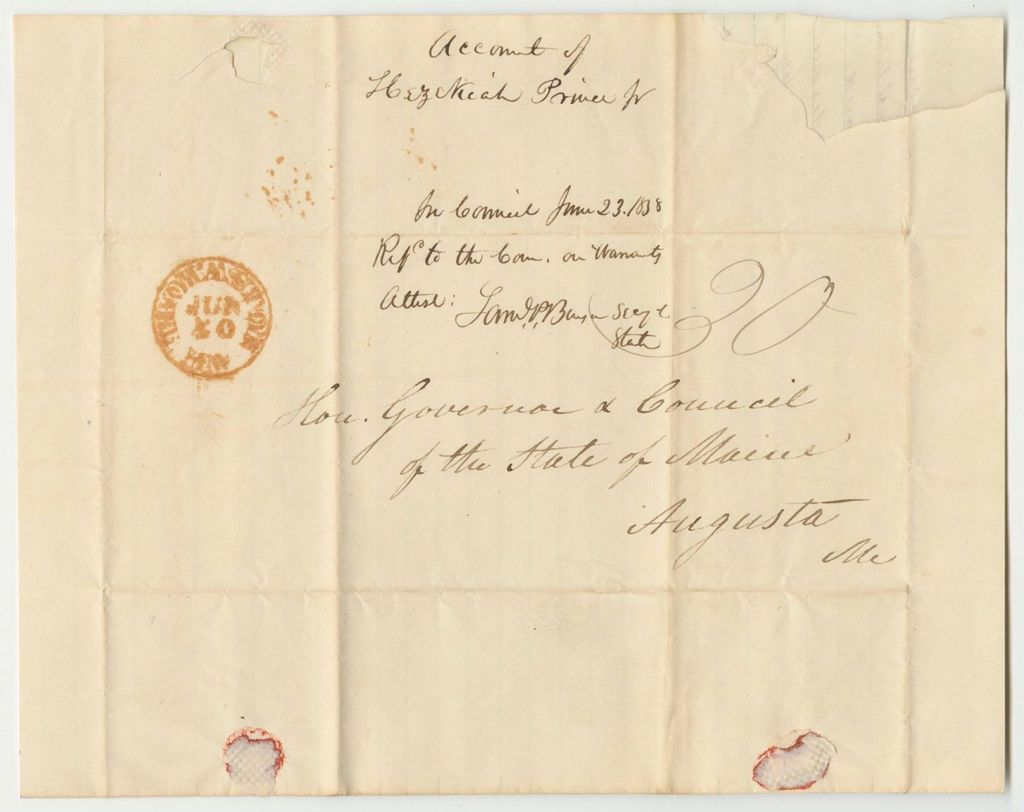 Account of
Hezekiah Prince Jr
In Council June 23. 1838
Refd to the Com. on Warrants
Attest:
Secy of
State
THOMASTON
JUN
20
Me.
30
Hon. Governor & Council
of the State of Maine
Augusta
Me